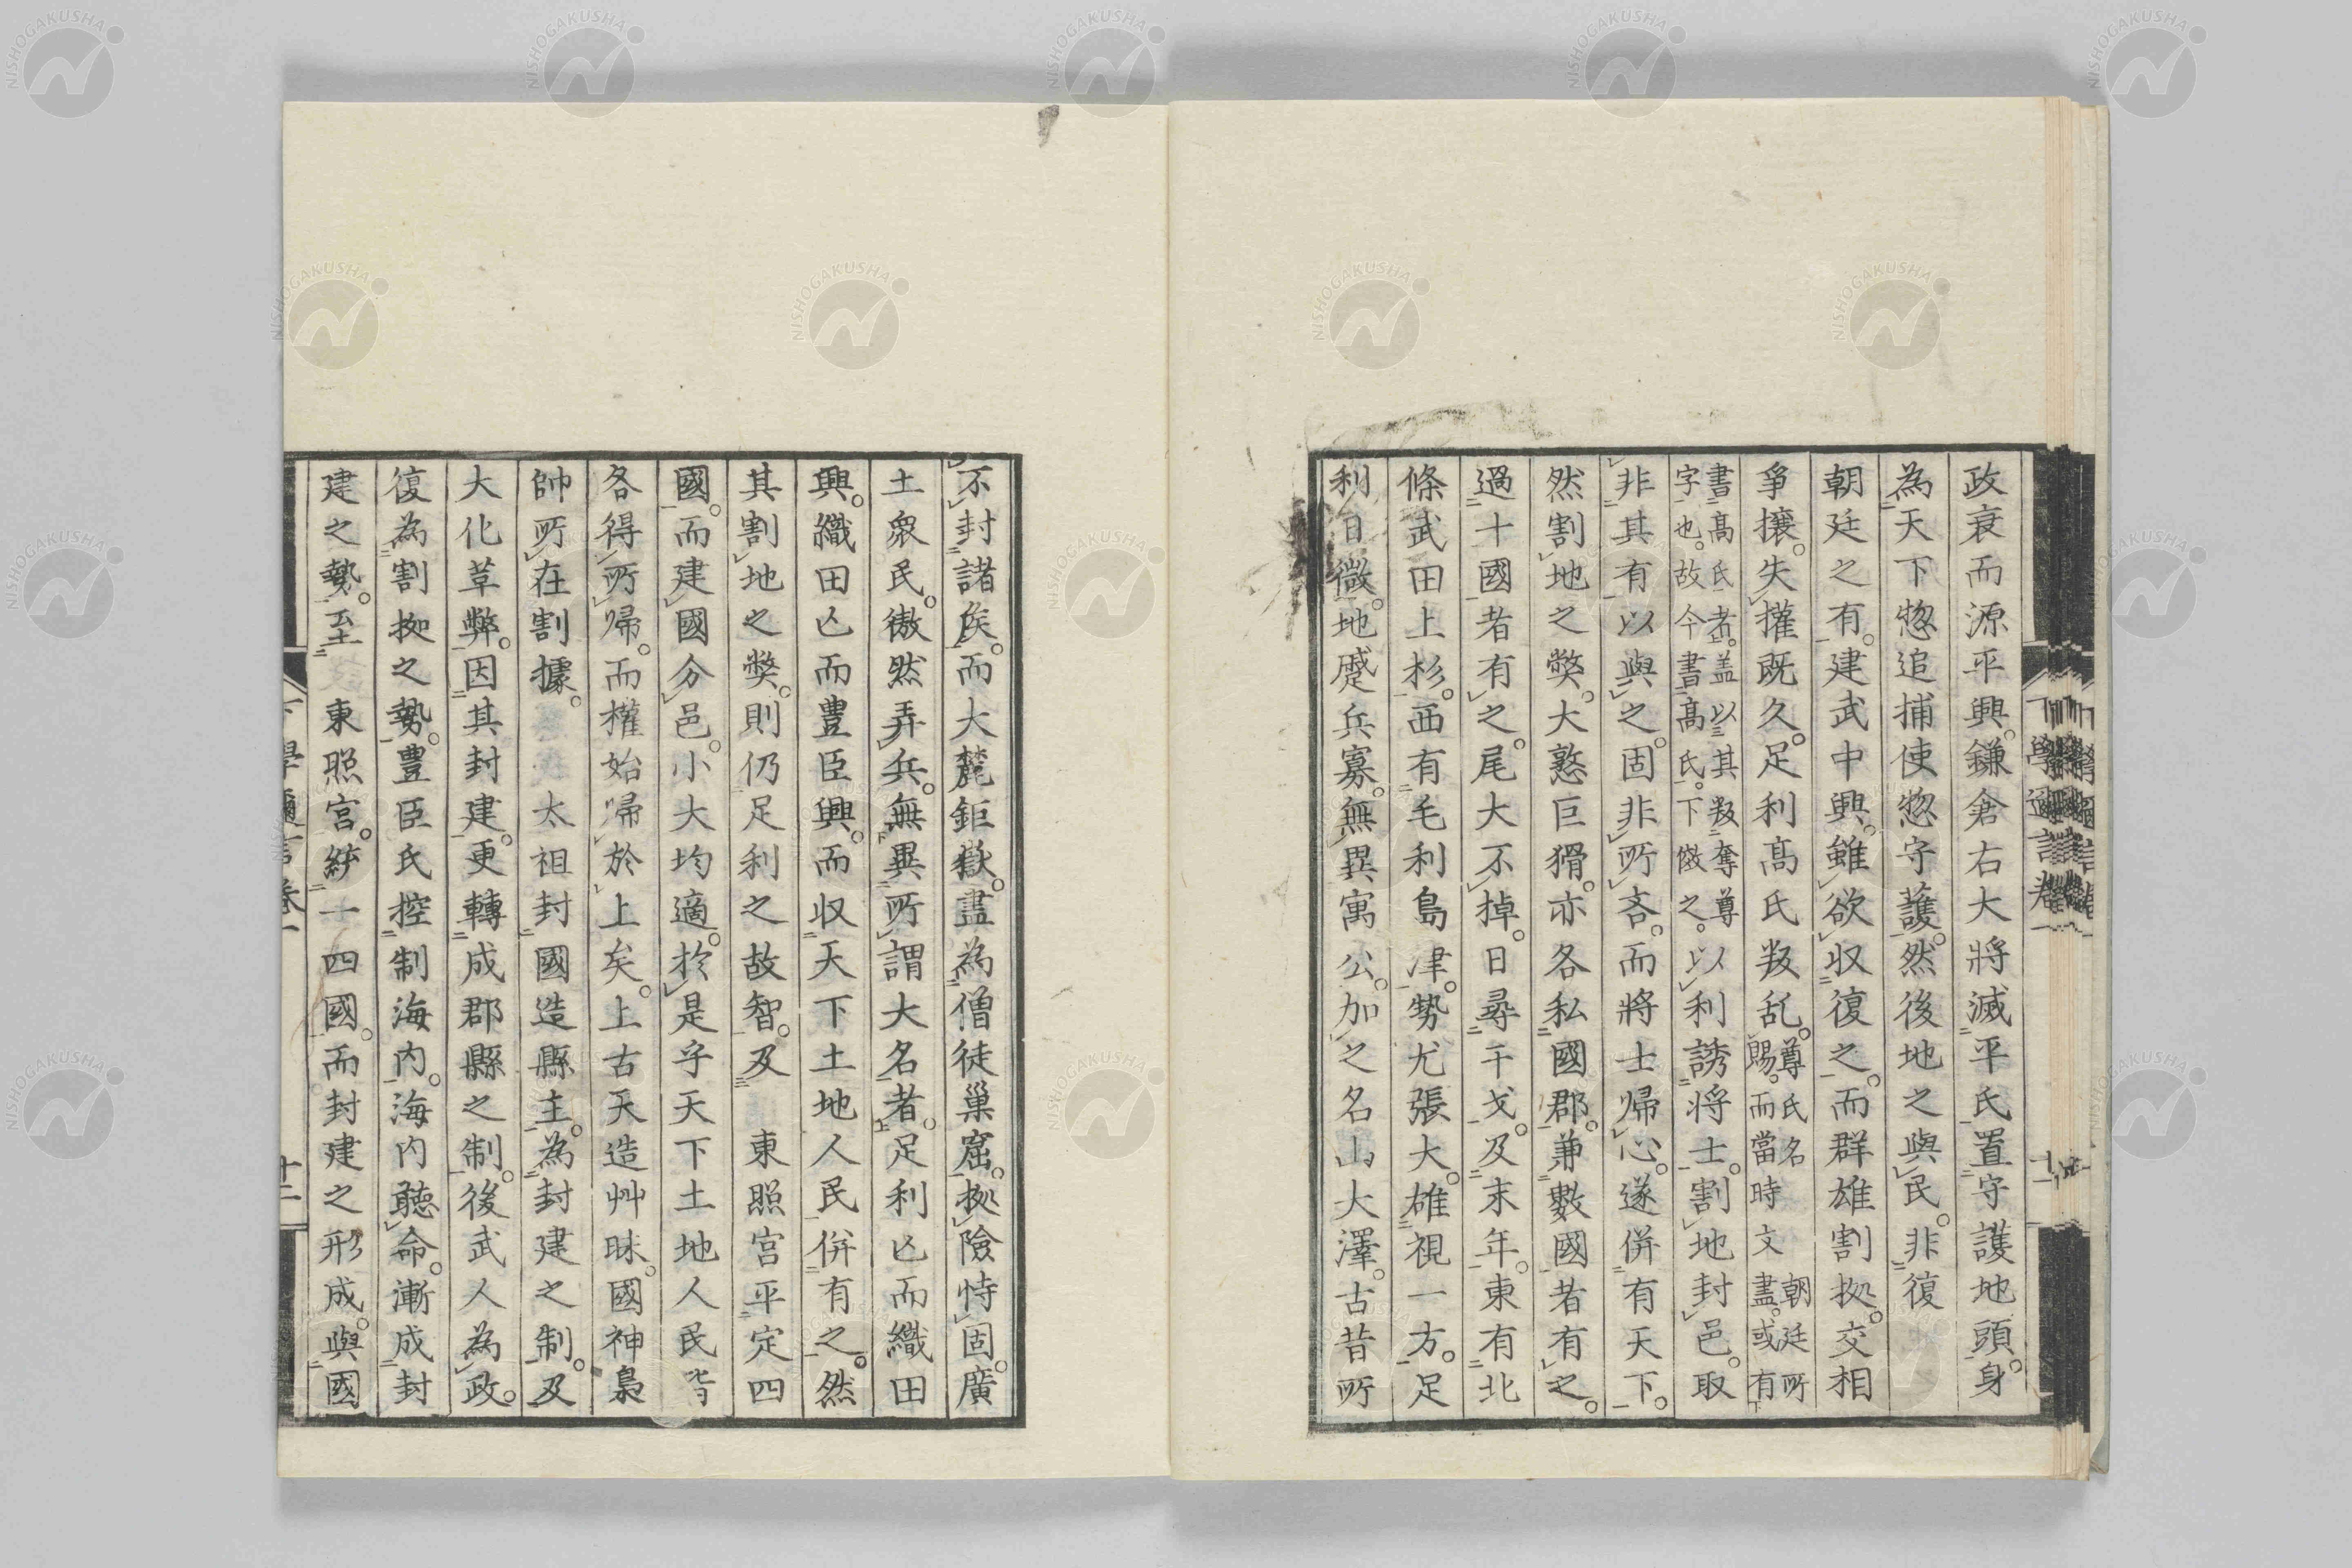 政衰而源平興。鎌倉右大將滅平氏置守護地頭。身
為天下惣追捕使惣守護。然後地之與民。非復
朝廷之有。建武中興。雖欲収復之。而群雄割拠。交相
爭攘。失權既久。足利髙氏叛乱。尊氏名朝廷所
賜。而當時文盡。或有
書髙氏者。盖以其叛奪尊
字也。故今書髙氏。下傚之。以利誘将士。割地封邑。取
非其有以與之。固非所吝。而將士帰心。遂併有天下。
然割地之弊。大憝巨猾。亦各私國郡。兼數國者有之。
過十國者有之。尾大不掉。日尋干戈。及末年。東有北
條武田上杉。西有毛利島津。勢尤張大。雄視一方。足
利日微。地蹙兵寡。無異寓公。加之名山大澤。古昔所
不封諸矦。而大麓鉅嶽。盡為僧徒巢窟。拠險恃固。廣
土衆民。傲然弄兵。無異所謂大名者。足利亾而織田
興。織田亾而豊臣興。而収天下土地人民併有之。然
其割地之弊。則仍足利之故智。及 東照宮平定四
國。而建國分邑。小大均適。於是乎天下土地人民皆
各得所帰。而權始帰於上矣。上古天造艸昧。國神梟
帥所在割據。 太祖封國造縣主。為封建之制。及
大化革弊。因其封建。更轉成郡縣之制。後武人為政。
復為割拠之勢。豊臣氏控制海内。海内聴命。漸成封
建之勢。至 東照宮。統一四國。而封建之形成。與國
下學邇言卷一
十二
NISHOGAKUSHA